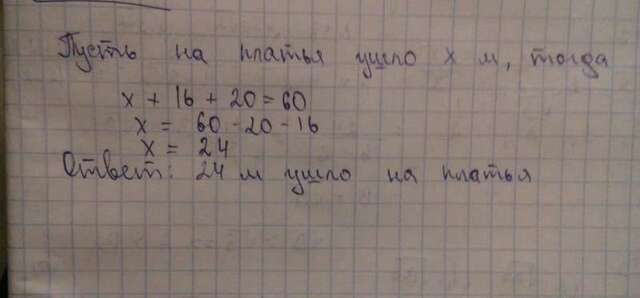 Пусть на платья ушло х м, тогда
х + 16 + 20 = 60
х = 60 - 20 - 16
х = 24
Ответ: 24 м ушло на платья